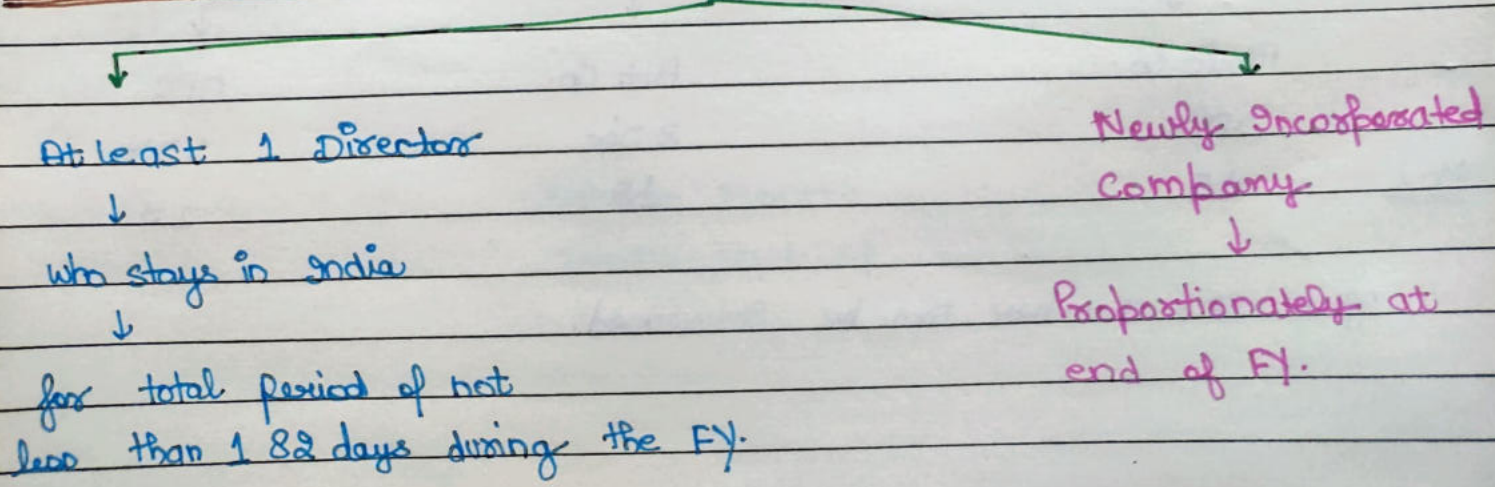 At least 1 Director
↓
who stays in India
↓
for total period of not
less than 182 days during the FY.
Newly Incorporated
Company
↓
Proportionately at
end of FY.